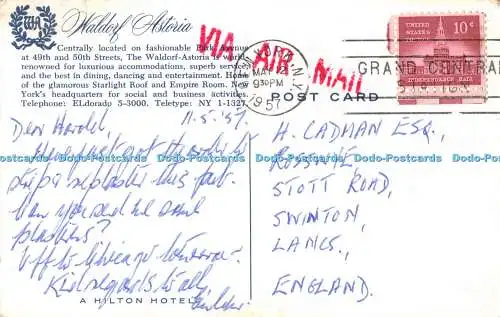 Waldorf Astoria
Centrally located on fashionable Park Avenue
at 49th and 50th Streets, The Waldorf-Astoria is world-
renowned for luxurious accommodations, superb service
and the best in dining, dancing and entertainment. Home
of the glamorous Starlight Roof and Empire Room. New
York's headquarters for social and business activities.
Telephone: ELdorado 5-3000. Teletype: NY 1-1327.
VIA AIR MAIL
NEW YORK, N.Y.
MAY 12
930PM
1957
GRAND CENTRAL
UNITED STATES POSTAGE
10¢
INDEPENDENCE HALL
POST CARD
11.5.57.
Dear Harold,
Have just got
this
Can you send me some
plasters?
Off to Chicago tomorrow.
Kind regards to all,
A HILTON HOTEL
H. CADMAN ESQ.,
STOTT ROAD,
SWINTON,
LANCS,
ENGLAND.
Dodo-Postcards Dodo-Postcards Dodo-Postcards Dodo-Postcards